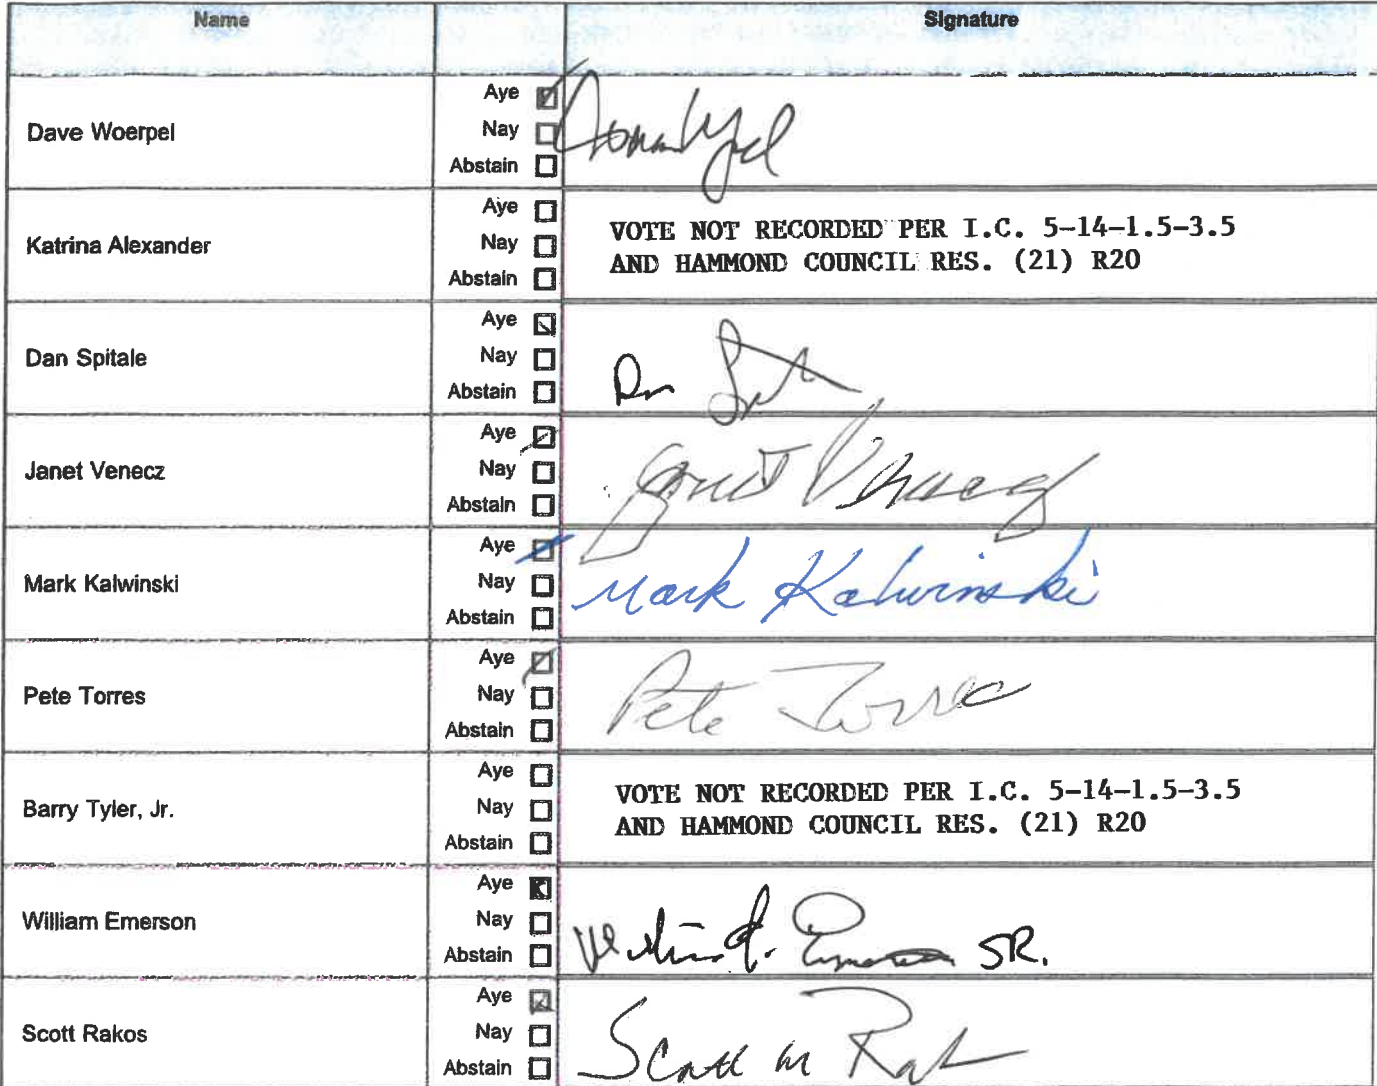 Name Signature
Dave Woerpel
Aye
Nay
Abstain
Katrina Alexander
Aye
Nay
Abstain
VOTE NOT RECORDED PER I.C. 5-14-1.5-3.5
AND HAMMOND COUNCIL RES. (21) R20
Dan Spitale
Aye
Nay
Abstain
Janet Venecz
Aye
Nay
Abstain
Janet Venecz
Mark Kalwinski
Aye
Nay
Abstain
Mark Kalwinski
Pete Torres
Aye
Nay
Abstain
Pete Torres
Barry Tyler, Jr.
Aye
Nay
Abstain
VOTE NOT RECORDED PER I.C. 5-14-1.5-3.5
AND HAMMOND COUNCIL RES. (21) R20
William Emerson
Aye
Nay
Abstain
SR.
Scott Rakos
Aye
Nay
Abstain
Scott M